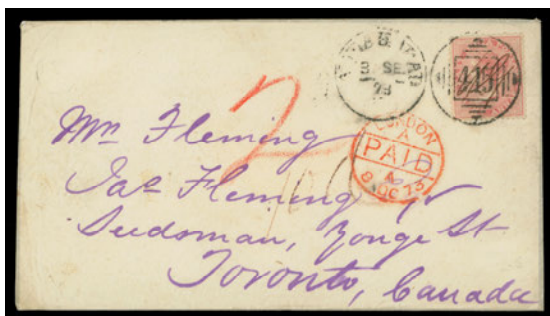 SE
73
2
LONDON
A
PAID
8 OC 73
Mr Fleming
Jas Fleming Jr
Seedsman, Yonge St
Toronto, Canada